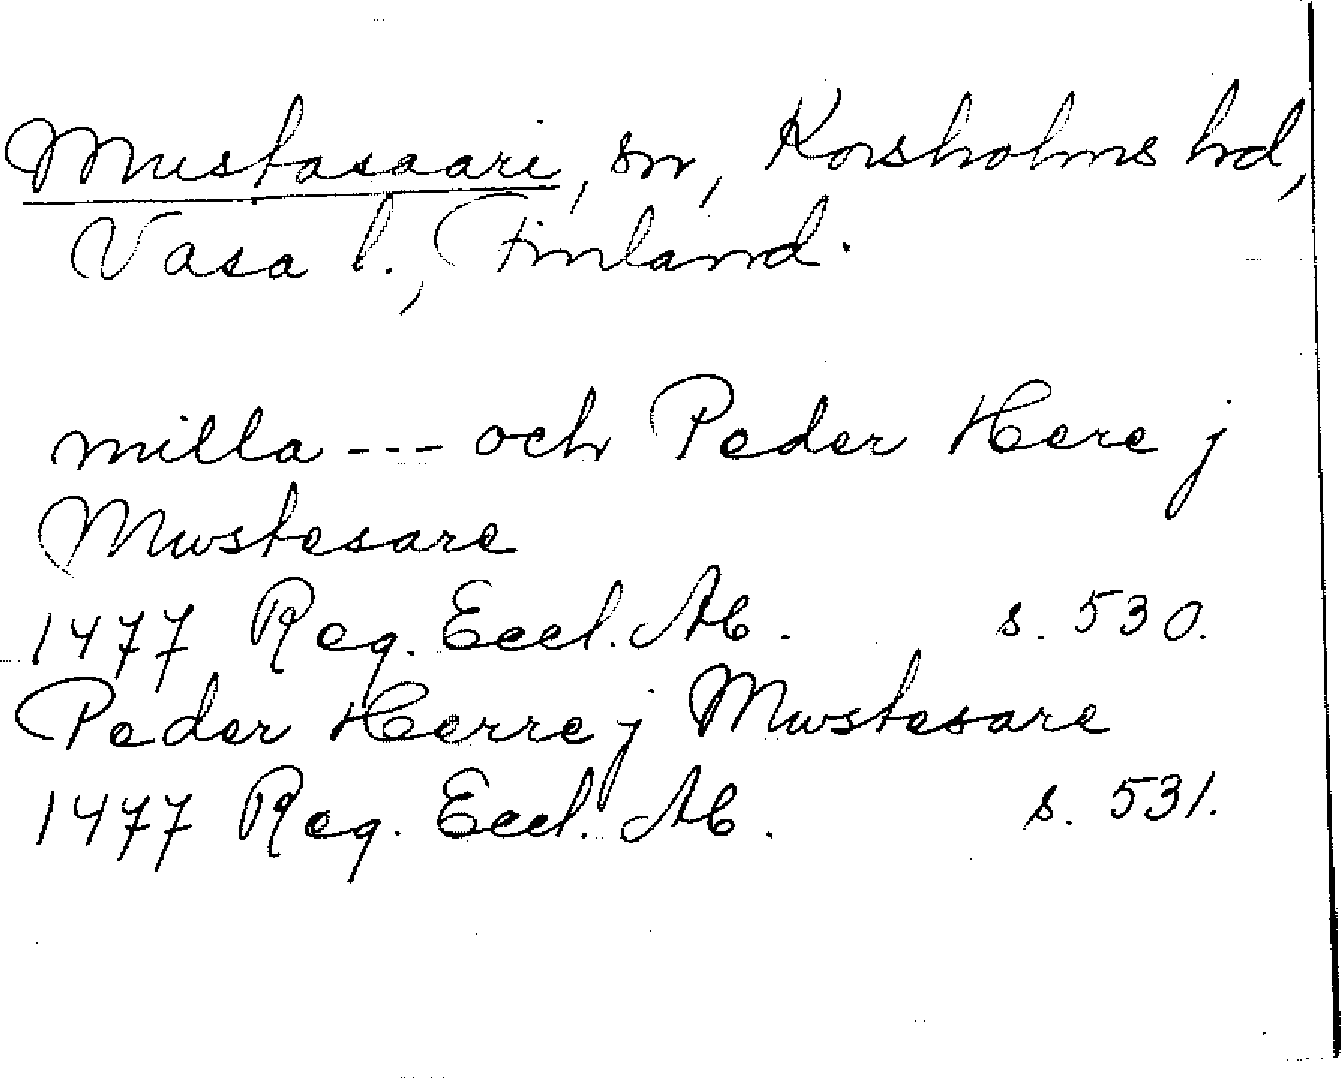 Mustasaari, sn, Korsholms hd,
Vasa l., Finland.
milla --- och Peder Here j
Mwstesare
1477 Reg. Eccl. Ab. s. 530.
Peder Herre j Mwstesare
1477 Reg. Eccl. Ab. s. 531.